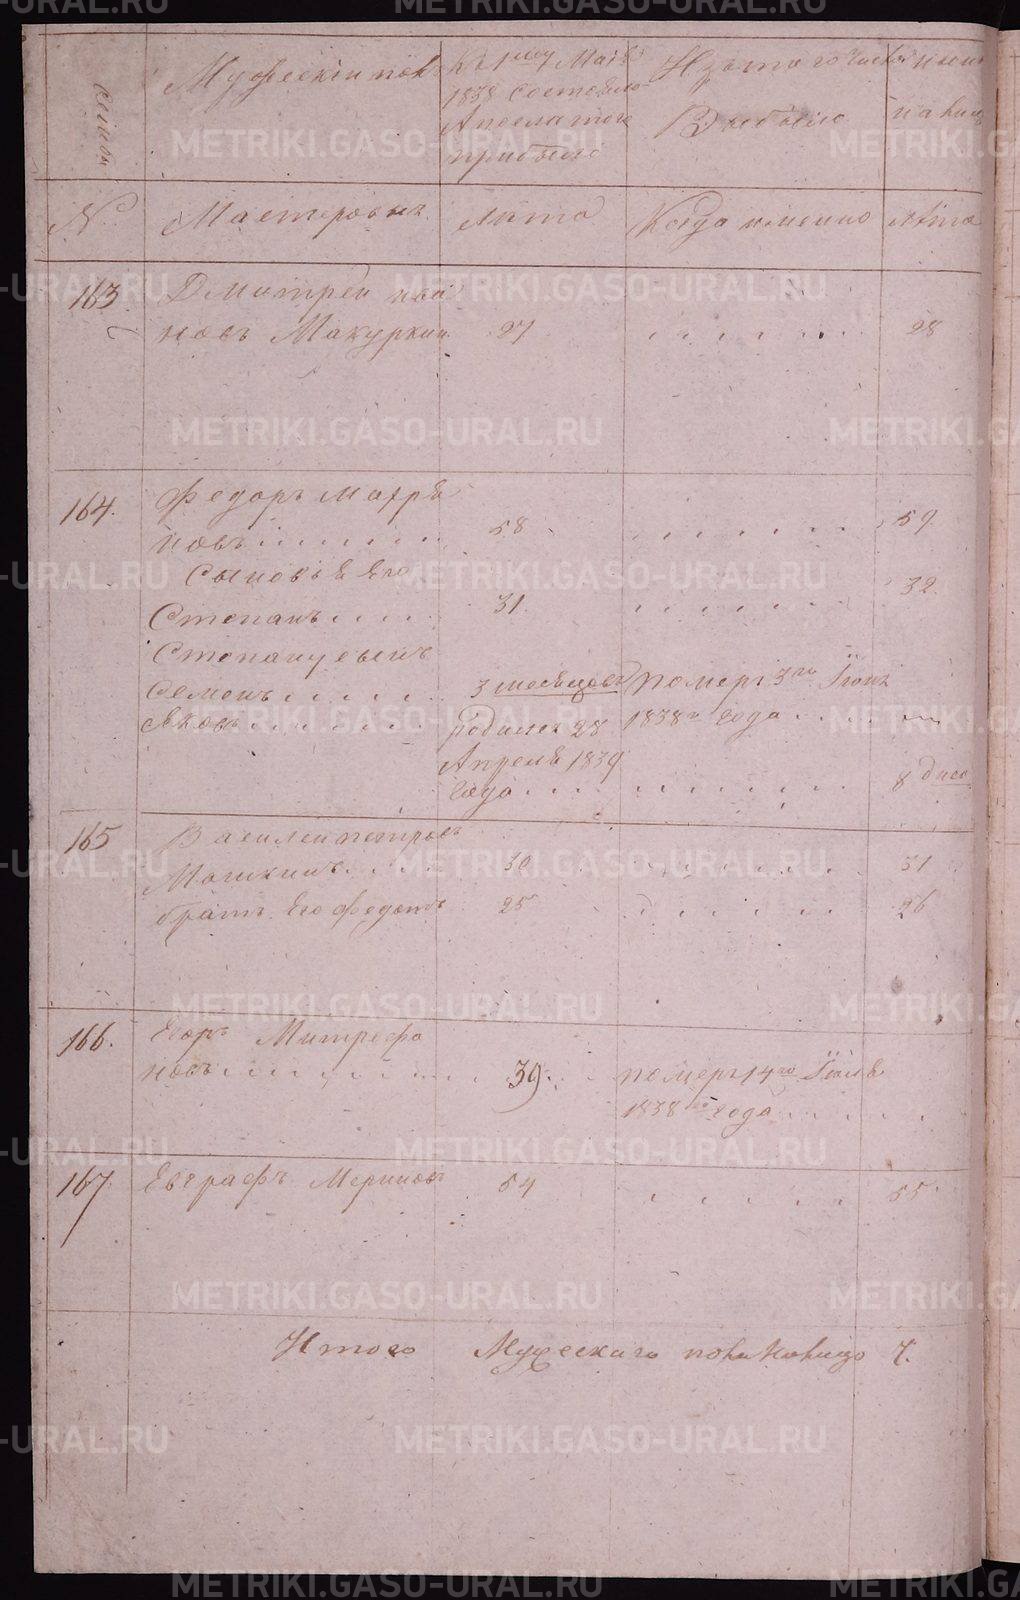 семьи
Мужескій полъ
Къ 1му Маія
1838 состояло
А после того
прибыло
Изъ того числа
Выбыло
ныне
на лицо
№
Мастеровыхъ
лѣта
Когда именно
лѣта
163
Дмитрей Ива
новъ Макуркин
27
28
164.
Федоръ Мат
новъ
58
59
Сыновья Его
Степанъ
31.
32.
Степану сынъ
Семенъ
3 месяцовъ
померъ 3го Іюня
1838го года
Яковъ
родился 28
Апреля 1839
года
8 дней
165
Василей Петровъ
Машкинъ
30
31
братъ Его Федотъ
25
26
166.
Егоръ Митрофа
новъ
39.
померъ 14го Іюля
1838го года
167.
Евграфъ Мериновъ
54
55
Итого Мужескаго пола налицо 7.
METRIKI.GASO-URAL.RU